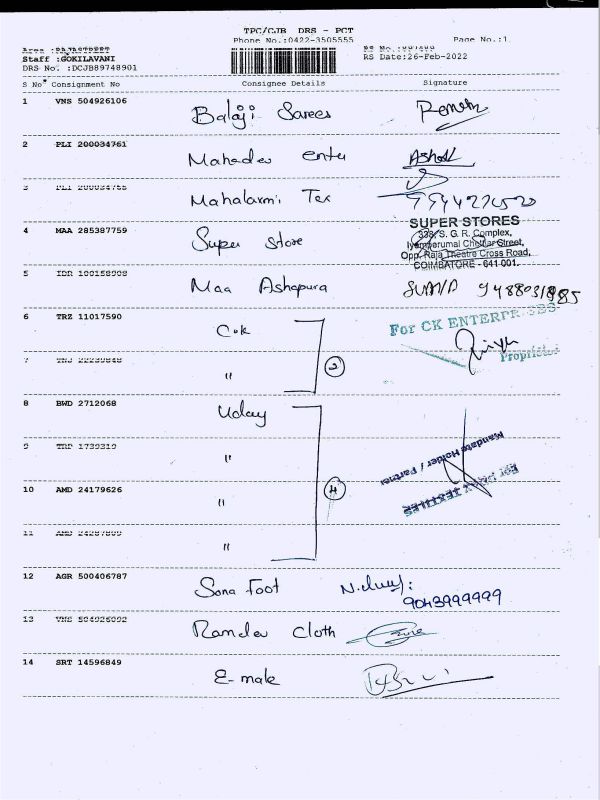 TPC/CJB DRS - PCT
Phone No.:0422-3505555 Page No.:1
Area :RAJASTREET
Staff :GOKILAVANI RS Date:26-Feb-2022
DRS No. :DCJB89748901
S No Consignment No Consignee Details Signature
1 VNS 504926106 Balaji Sarees
2 PLI 200034761 Mahadev enter Ashok
3 PLI Mahalaxmi Tex
4 MAA 285387759 Super Store
SUPER STORES
338, S. G. R. Complex,
Iyemperumal Chettiar Street,
Opp. Raja Theatre Cross Road,
COIMBATORE - 641 001.
5 IDR 100158908 Maa Ashapura 9488031885
6 TRZ 11017590 Cok
For CK ENTERPRISES
Proprietor
7 " 2
8 BWD 2712068 Uday
9 TRP 1739319 "
Mandate Holder / Partner
10 AMD 24179626 " 4
11 AMD "
12 AGR 500406787 Sona Foot
9043999999
13 VNS Ramdev Cloth
14 SRT 14596849 E-male